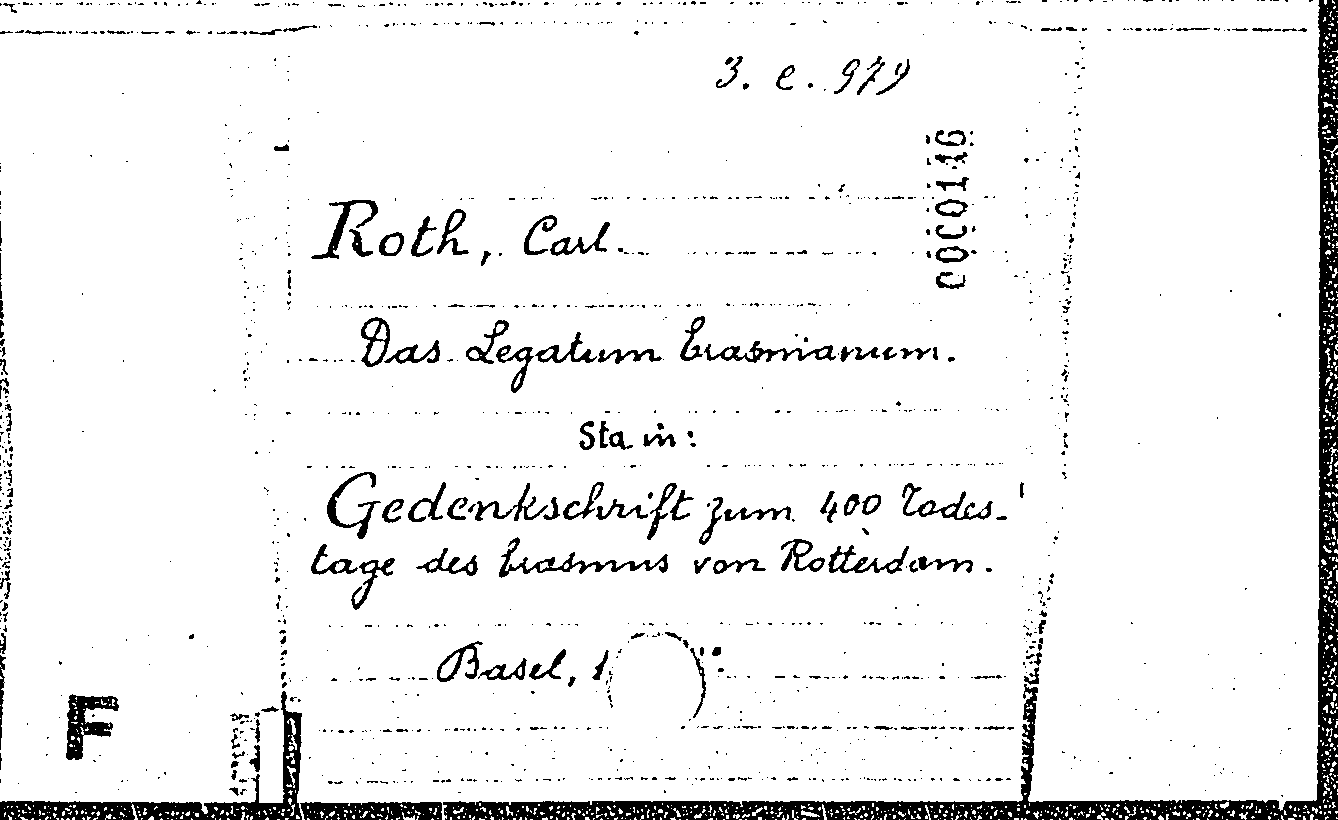 3. e. 979
0000146
Roth, Carl.
Das Legatum Erasmianum.
Sta in:
Gedenkschrift zum 400 Todes-
tage des Erasmus von Rotterdam.
Basel, 1
F